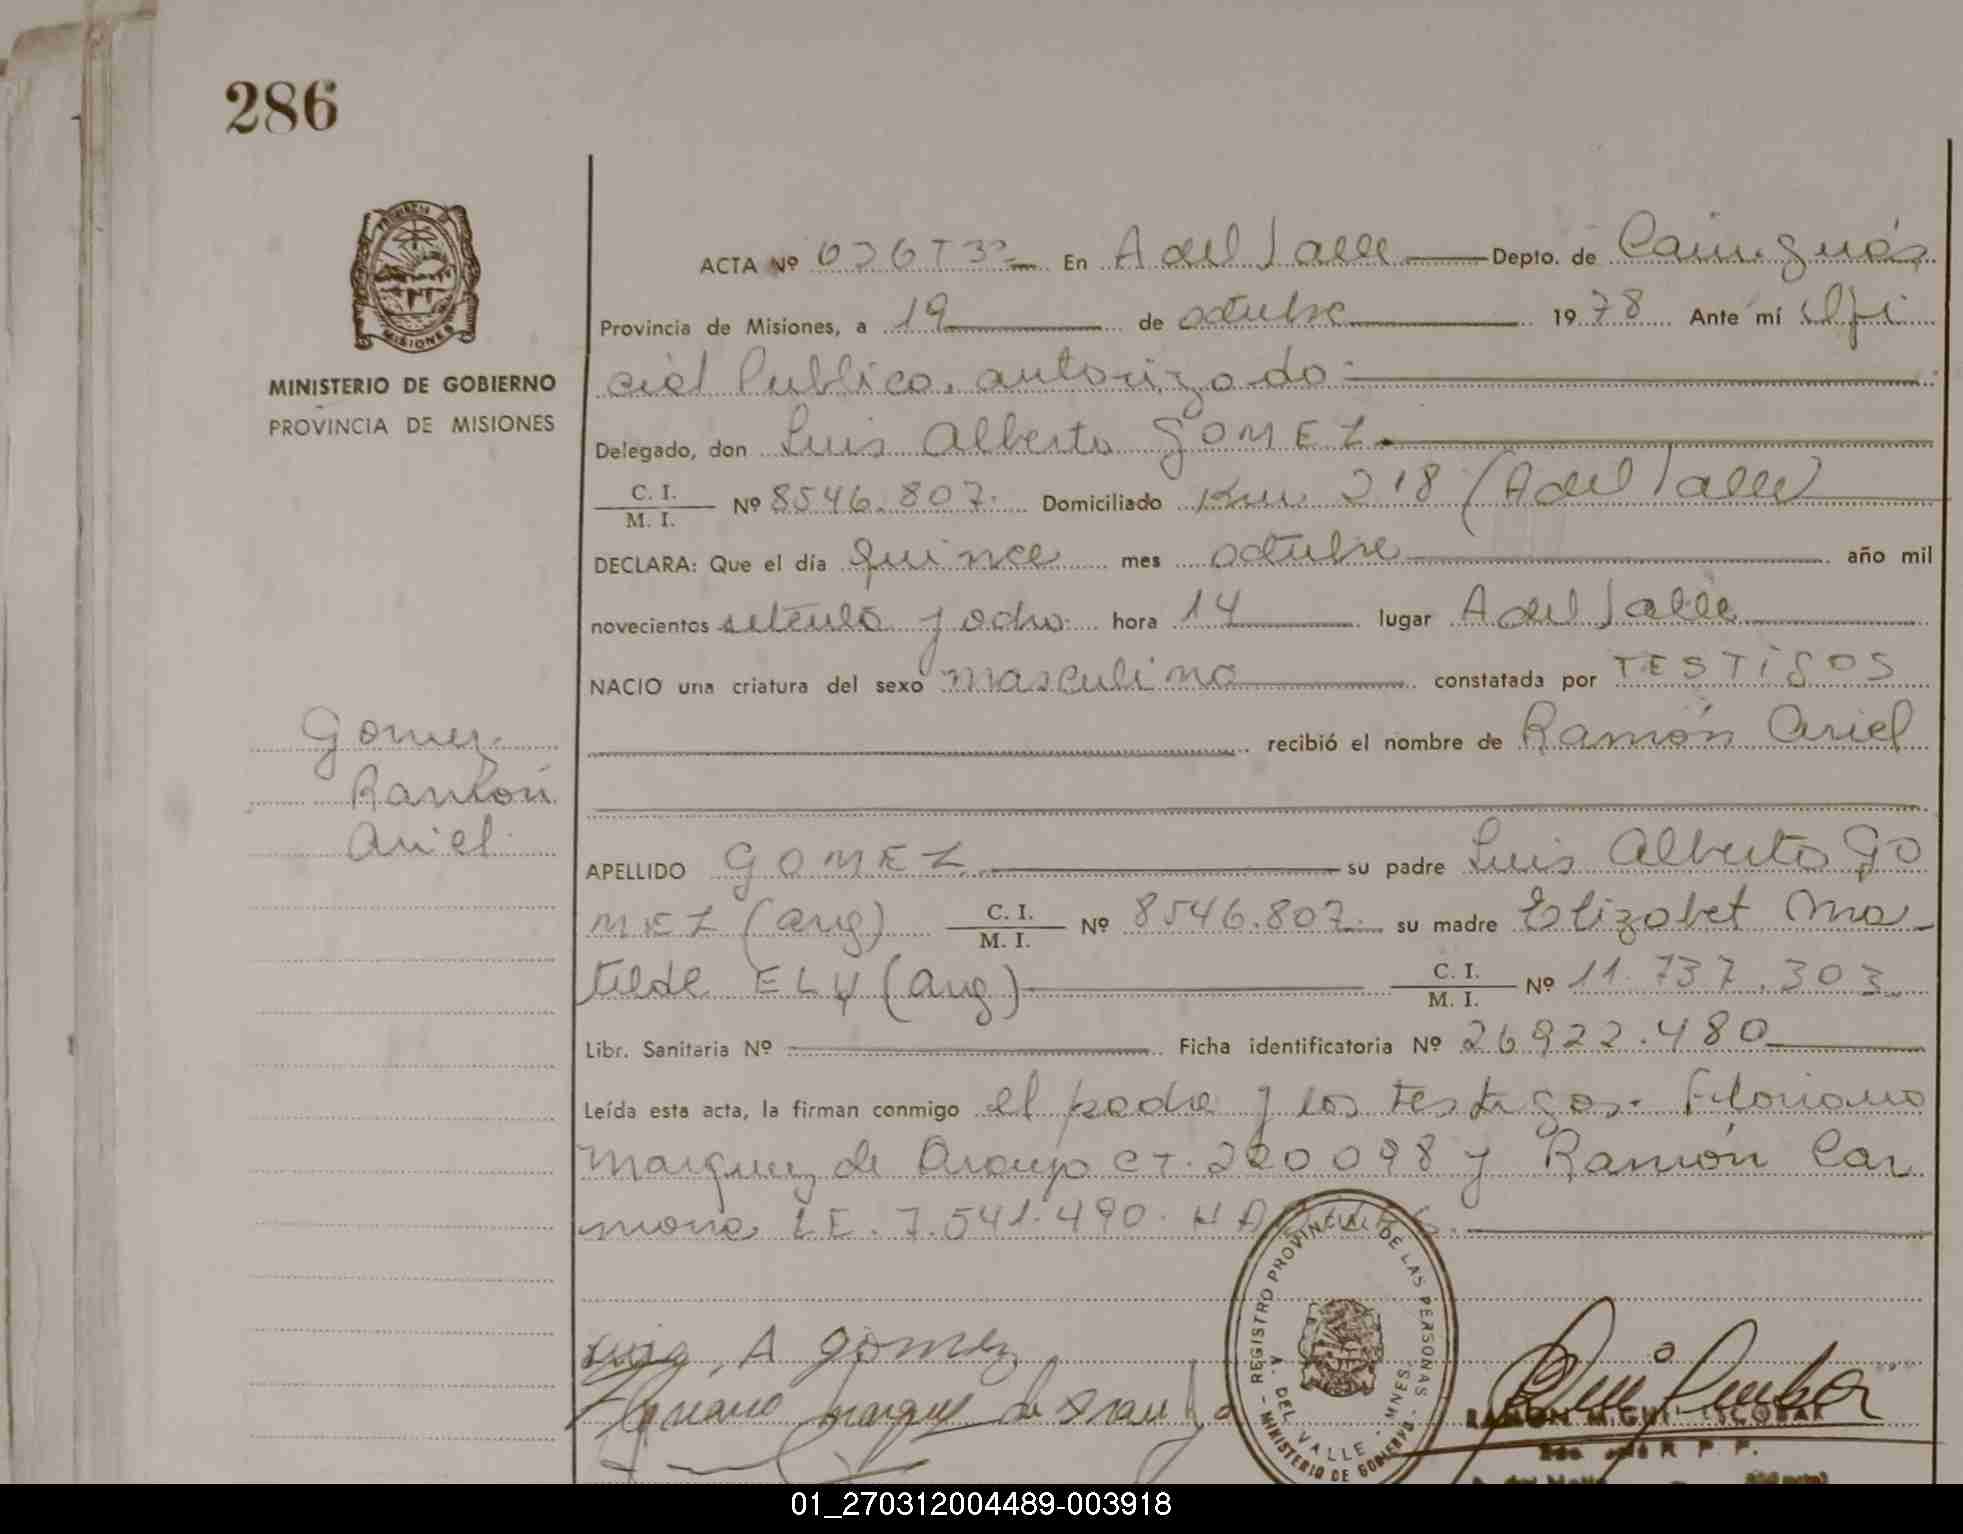 286
PROVINCIA D
MISIONES
MINISTERIO DE GOBIERNO
PROVINCIA DE MISIONES
ACTA Nº En A del Valle Depto. de Cainguás
Provincia de Misiones, a 19 de octubre 1978 Ante mí Ofi
cial Publico. autorizado
Delegado, don Luis Alberto GOMEZ
C. I.
M. I.
Nº 8546.807. Domiciliado Km 218 (A del Valle)
DECLARA: Que el día quince mes octubre año mil
novecientos setenta y ocho hora 14 lugar A del Valle
NACIO una criatura del sexo masculino constatada por TESTIGOS
recibió el nombre de Ramón Ariel
Gomez
Ramón
Ariel.
APELLIDO GOMEZ su padre Luis Alberto GO
MEZ (arg) C. I.
M. I. Nº 8546.807. su madre Elizabet Ma-
tilde ELY (arg) C. I.
M. I. Nº 11.737.303
Libr. Sanitaria Nº Ficha identificatoria Nº 26922.480
Leída esta acta, la firman conmigo el padre y los testigos. Floriano
Marquez de Araujo CI. 220098 y Ramón Car
mona LE. 7.541.490.
Luis A gomez
Floriano marques de Araujo
REGISTRO PROVINCIAL DE LAS PERSONAS
A. DEL VALLE - MNES.
MINISTERIO DE GOBIERNO
RAMON MIGUEL ESCOBAR
R P P.
01_270312004489-003918